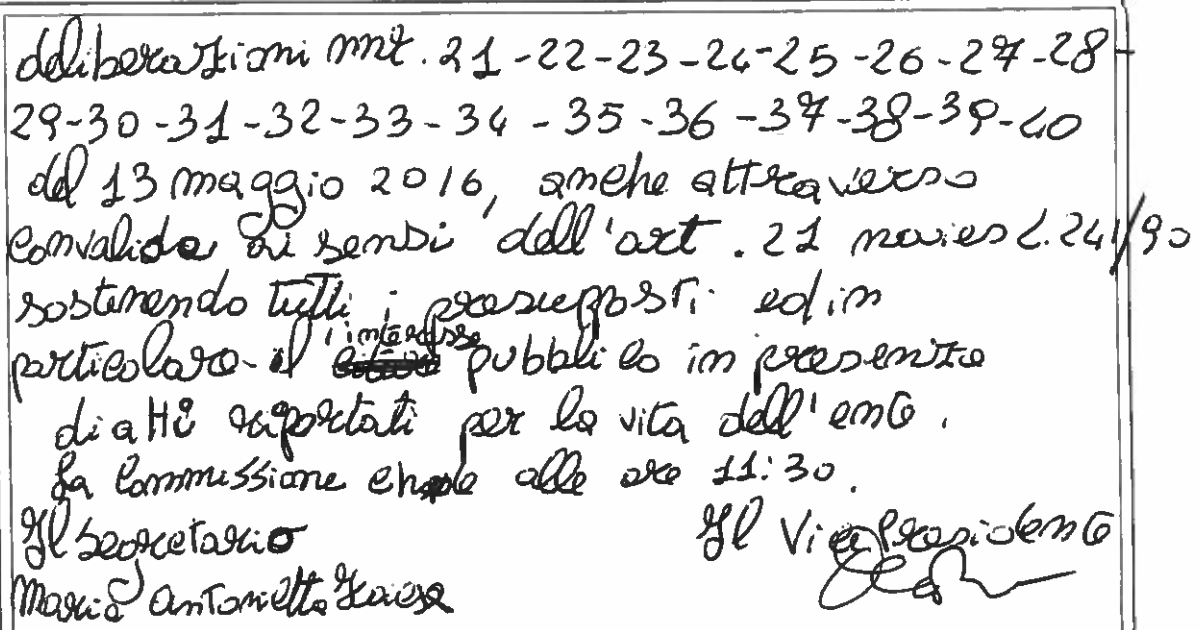 deliberazioni nnt. 21-22-23-24-25-26-27-28
29-30-31-32-33-34-35-36-37-38-39-40
del 13 maggio 2016, anche attraverso
convalida ai sensi dell'art. 21 novies L. 241/90
sostenendo tutti i presupposti ed in
particolare il l'interesse pubblico in presenza
di atti riportati per la vita dell'ente.
La Commissione chiude alle ore 11:30.
Il Segretario Il Vice Presidente
Maria Antonietta